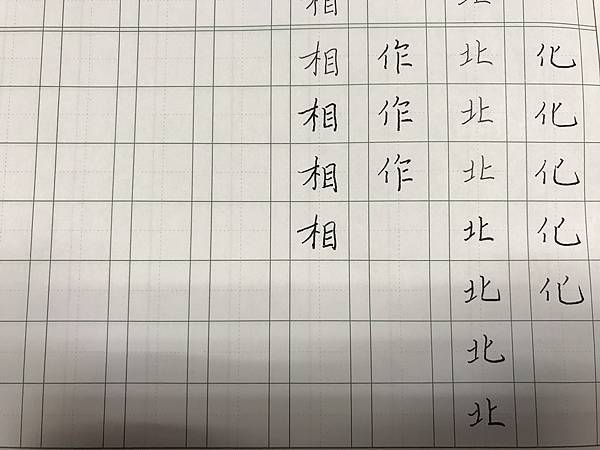 化化化化化
北北北北北北北
作作作
相相相相